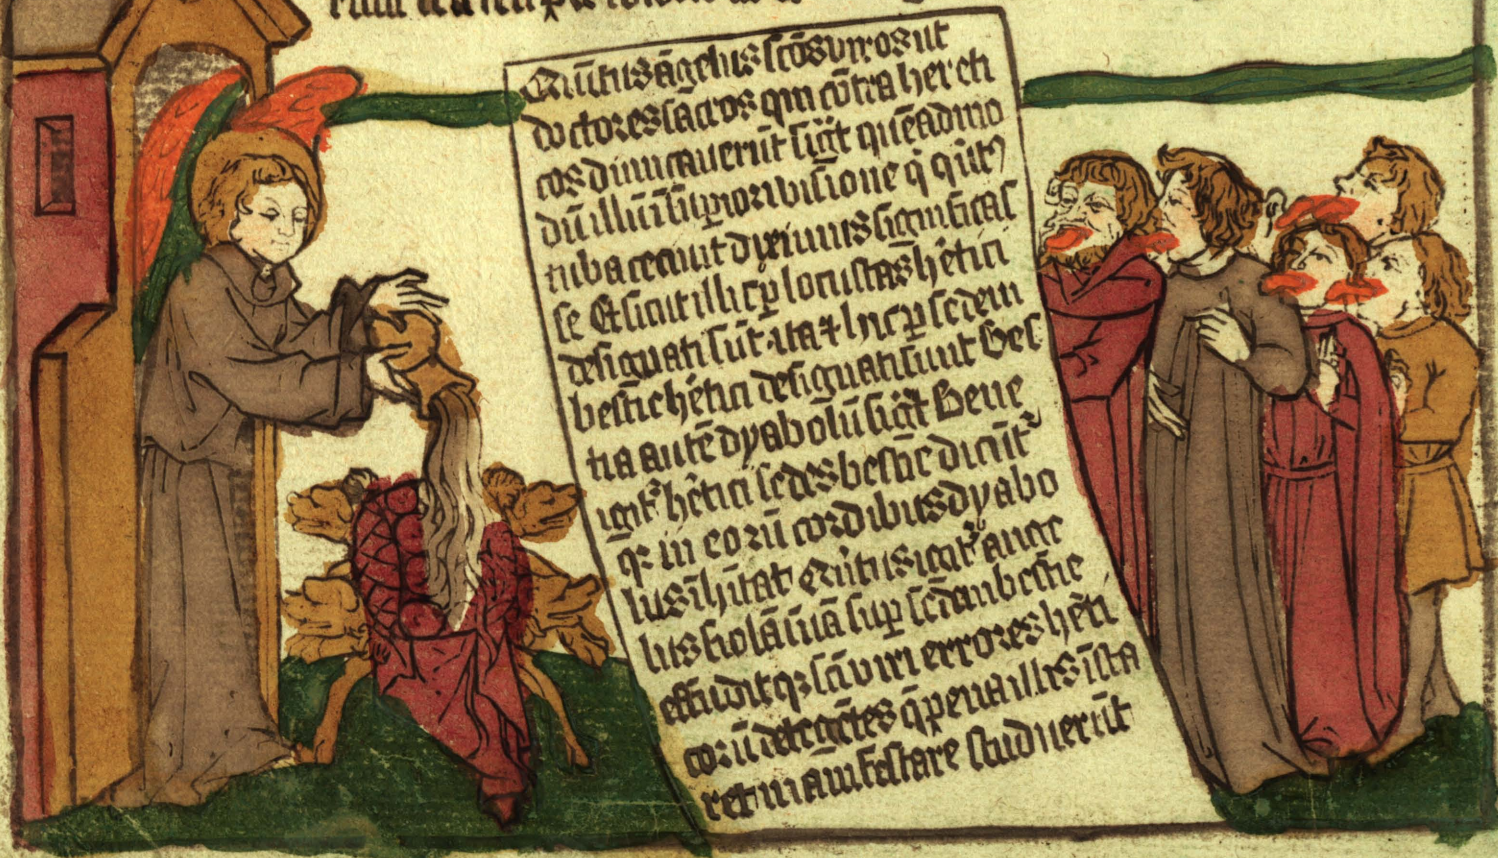 Qui̅tus a̅gelus sc̅os viros ut
doctores sacros qui co̅tra hereti
cos dimicaueru̅t sig̅t que̅admo
du̅ illu̅ i̅ sup̅iori visione q̇ qui̅t⁹
tuba cecinit diximus significas
se Et sicut illi p̱ locustas he̅tici
designati su̅t ita ⁊ hic p̱ sedem
bestie he̅tici designati sunt Bes
tia aute̅ dyabolu̅ sig̅t Bene
igit᷑ he̅tici sedes bestie dicu̅t᷑
qꝛ in eoru̅ cordibus dyabo
lus i̅h̅itat Qui̅tus igit᷑ ange
lus fiola̅ sua̅ sup̱ sede̅ bestie
effudit qꝛ sc̅i viri errores he̅ti
coru̅ detege̅tes
ret manifestare studueru̅t